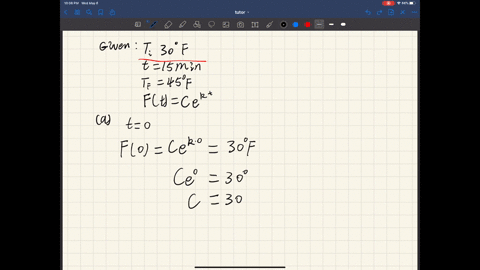 10:06 PM Wed May 4
tutor
Given: Tᵢ 30°F
t = 15 min
T_F = 45°F
F(t) = Ce^{kt}
(a) t = 0
F(0) = Ce^{k·0} = 30°F
Ce⁰ = 30°
C = 30